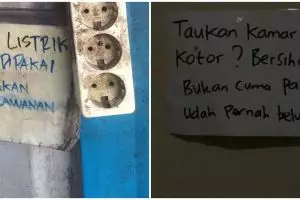 LISTRIK
DIPAKAI
KAN
LAWANAN
Taukan Kamar
Kotor ? Bersih
Bukan Cuma Pa
Udah Pernah belu